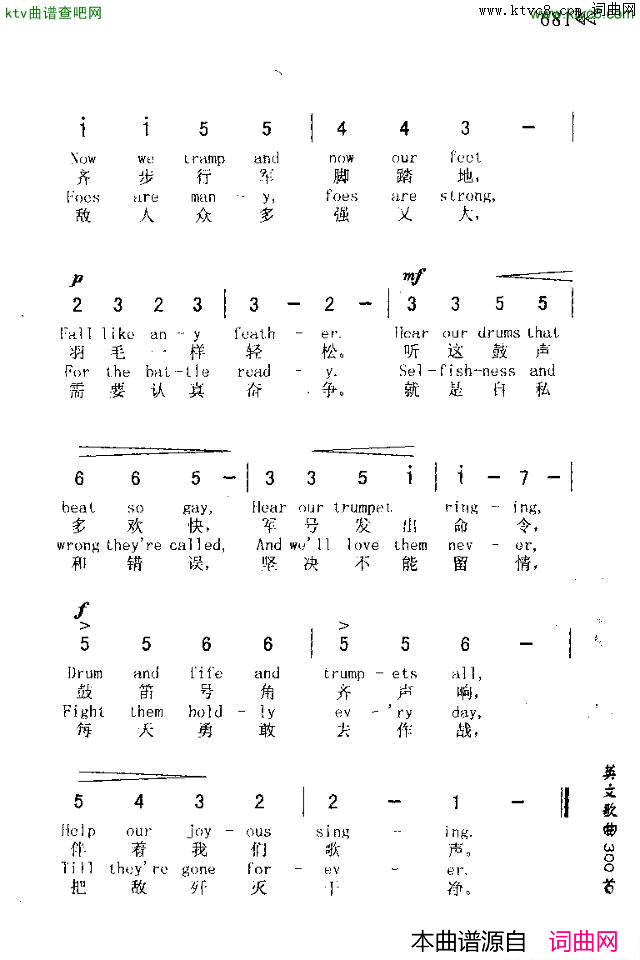 ktv曲谱查吧网
www.ktvc8.com 词曲网
681
i i 5 5 | 4 4 3 - |
Now we tramp and now our feet
齐步行军脚踏地,
Foes are man-y, foes are strong,
敌人众多强又大,
p mf
2 3 2 3 | 3 - 2 - | 3 3 5 5 |
Fall like an-y feath-er. Hear our drums that
羽毛一样轻松。听这鼓声
For the bat-tle read-y. Sel-fish-ness and
需要认真奋争。就是自私
6 6 5 - | 3 3 5 i | i - 7 - |
beat so gay, Hear our trumpet ring-ing,
多欢快, 军号发出命令,
wrong they're called, And we'll love them nev-er,
和错误, 坚决不能留情,
f
> >
5 5 6 6 | 5 5 6 - |
Drum and fife and trump-ets all,
鼓笛号角齐声响,
Fight them bold-ly ev-'ry day,
每天勇敢去作战,
5 4 3 2 | 2 - 1 - ‖
Help our joy-ous sing-ing.
伴着我们歌声。
Till they're gone for-ev-er.
把敌歼灭干净。
英文歌曲300首
本曲谱源自 词曲网